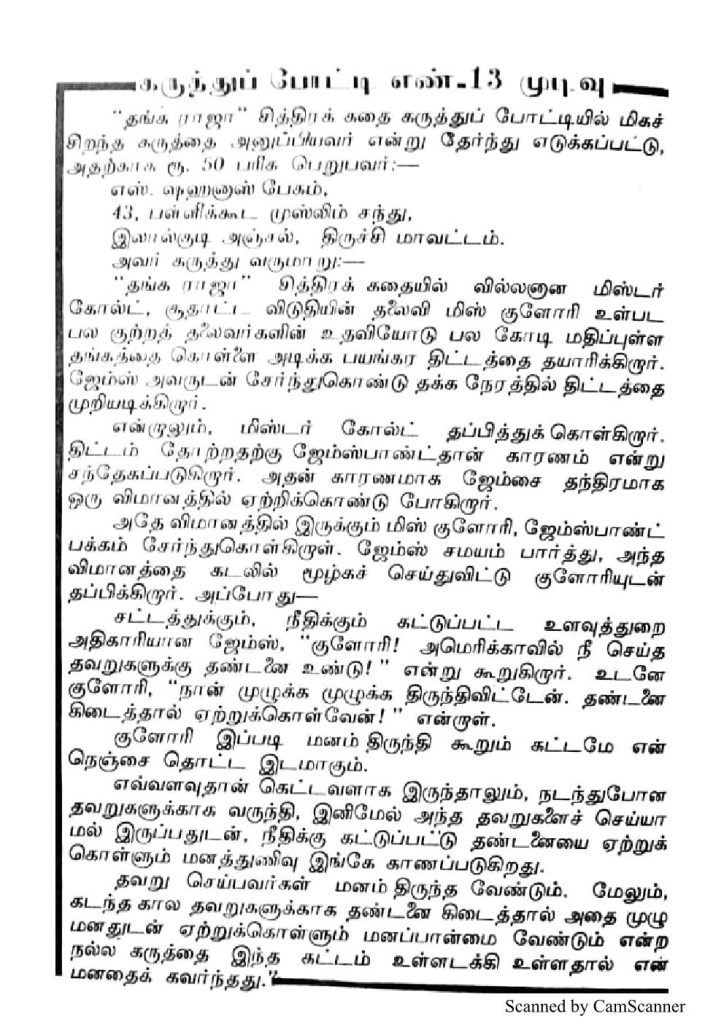 கருத்துப் போட்டி எண்-13 முடிவு
"தங்க ராஜா" சித்திரக் கதை கருத்துப் போட்டியில் மிகச்
சிறந்த கருத்தை அனுப்பியவர் என்று தேர்ந்து எடுக்கப்பட்டு,
அதற்காக ரூ. 50 பரிசு பெறுபவர்:—
எஸ். ஷஹனாஸ் பேகம்,
43, பள்ளிக்கூட முஸ்லிம் சந்து,
இலால்குடி அஞ்சல், திருச்சி மாவட்டம்.
அவர் கருத்து வருமாறு:—
"தங்க ராஜா" சித்திரக் கதையில் வில்லனான மிஸ்டர்
கோல்ட், சூதாட்ட விடுதியின் தலைவி மிஸ் குளோரி உள்பட
பல குற்றத் தலைவர்களின் உதவியோடு பல கோடி மதிப்புள்ள
தங்கத்தை கொள்ளை அடிக்க பயங்கர திட்டத்தை தயாரிக்கிறார்.
ஜேம்ஸ் அவருடன் சேர்ந்துகொண்டு தக்க நேரத்தில் திட்டத்தை
முறியடிக்கிறார்.
என்றாலும், மிஸ்டர் கோல்ட் தப்பித்துக் கொள்கிறார்.
திட்டம் தோற்றதற்கு ஜேம்ஸ்பாண்ட்தான் காரணம் என்று
சந்தேகப்படுகிறார். அதன் காரணமாக ஜேம்சை தந்திரமாக
ஒரு விமானத்தில் ஏற்றிக்கொண்டு போகிறார்.
அதே விமானத்தில் இருக்கும் மிஸ் குளோரி, ஜேம்ஸ்பாண்ட்
பக்கம் சேர்ந்துகொள்கிறாள். ஜேம்ஸ் சமயம் பார்த்து, அந்த
விமானத்தை கடலில் மூழ்கச் செய்துவிட்டு குளோரியுடன்
தப்பிக்கிறார். அப்போது—
சட்டத்துக்கும், நீதிக்கும் கட்டுப்பட்ட உளவுத்துறை
அதிகாரியான ஜேம்ஸ், "குளோரி! அமெரிக்காவில் நீ செய்த
தவறுகளுக்கு தண்டனை உண்டு!" என்று கூறுகிறார். உடனே
குளோரி, "நான் முழுக்க முழுக்க திருந்திவிட்டேன். தண்டனை
கிடைத்தால் ஏற்றுக்கொள்வேன்!" என்றாள்.
குளோரி இப்படி மனம் திருந்தி கூறும் கட்டமே என்
நெஞ்சை தொட்ட இடமாகும்.
எவ்வளவுதான் கெட்டவளாக இருந்தாலும், நடந்துபோன
தவறுகளுக்காக வருந்தி, இனிமேல் அந்த தவறுகளைச் செய்யா
மல் இருப்பதுடன், நீதிக்கு கட்டுப்பட்டு தண்டனையை ஏற்றுக்
கொள்ளும் மனத்துணிவு இங்கே காணப்படுகிறது.
தவறு செய்பவர்கள் மனம் திருந்த வேண்டும். மேலும்,
கடந்த கால தவறுகளுக்காக தண்டனை கிடைத்தால் அதை முழு
மனதுடன் ஏற்றுக்கொள்ளும் மனப்பான்மை வேண்டும் என்ற
நல்ல கருத்தை இந்த கட்டம் உள்ளடக்கி உள்ளதால் என்
மனதைக் கவர்ந்தது."
Scanned by CamScanner